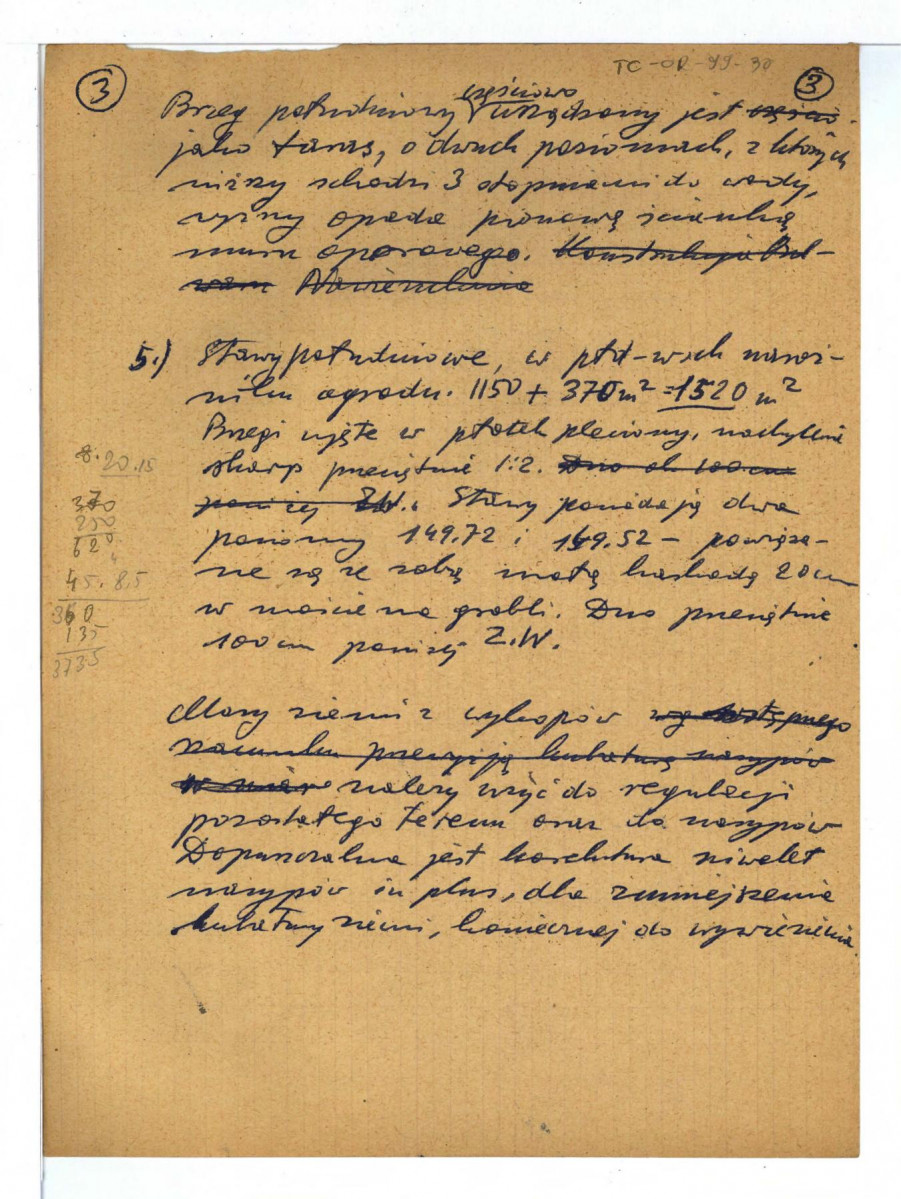 TC-OR-99-30
3 3
częściowo
Brzeg południowy urządzony jest częścio
jako taras, o dwuch poziomach, z których
niższy schodzi 3 stopniami do wody,
wyższy opada pionową ścianką
muru oporowego. Konstrukcja
Nawierzchnia
5.) Stawy południowe, w płd-wsch naroż-
niku ogrodu. 1150 + 370 m² = 1520 m²
Brzegi ujęte w płotek pleciony, nachylenie
skarp przeciętnie 1:2. Dno ok. 100 cm
poniżej Z.W. Stawy posiadają dwa
poziomy 149.72 i 149.52 – powiąza-
ne są ze sobą małą kaskadą 20 cm
w moście na grobli. Dno przeciętnie
100 cm poniżej Z.W.
8.20.15
370
250
620
45. 8.5
360
135
3735
Masy ziemi z wykopów wg wstępnego
rachunku przewyższają kubaturę nasypów
należy użyć do regulacji
pozostałego terenu oraz do nasypów
Dopuszczalna jest korektura niwelet
nasypów in plus, dla zmniejszenia
kubatury ziemi, koniecznej do wywiezienia.